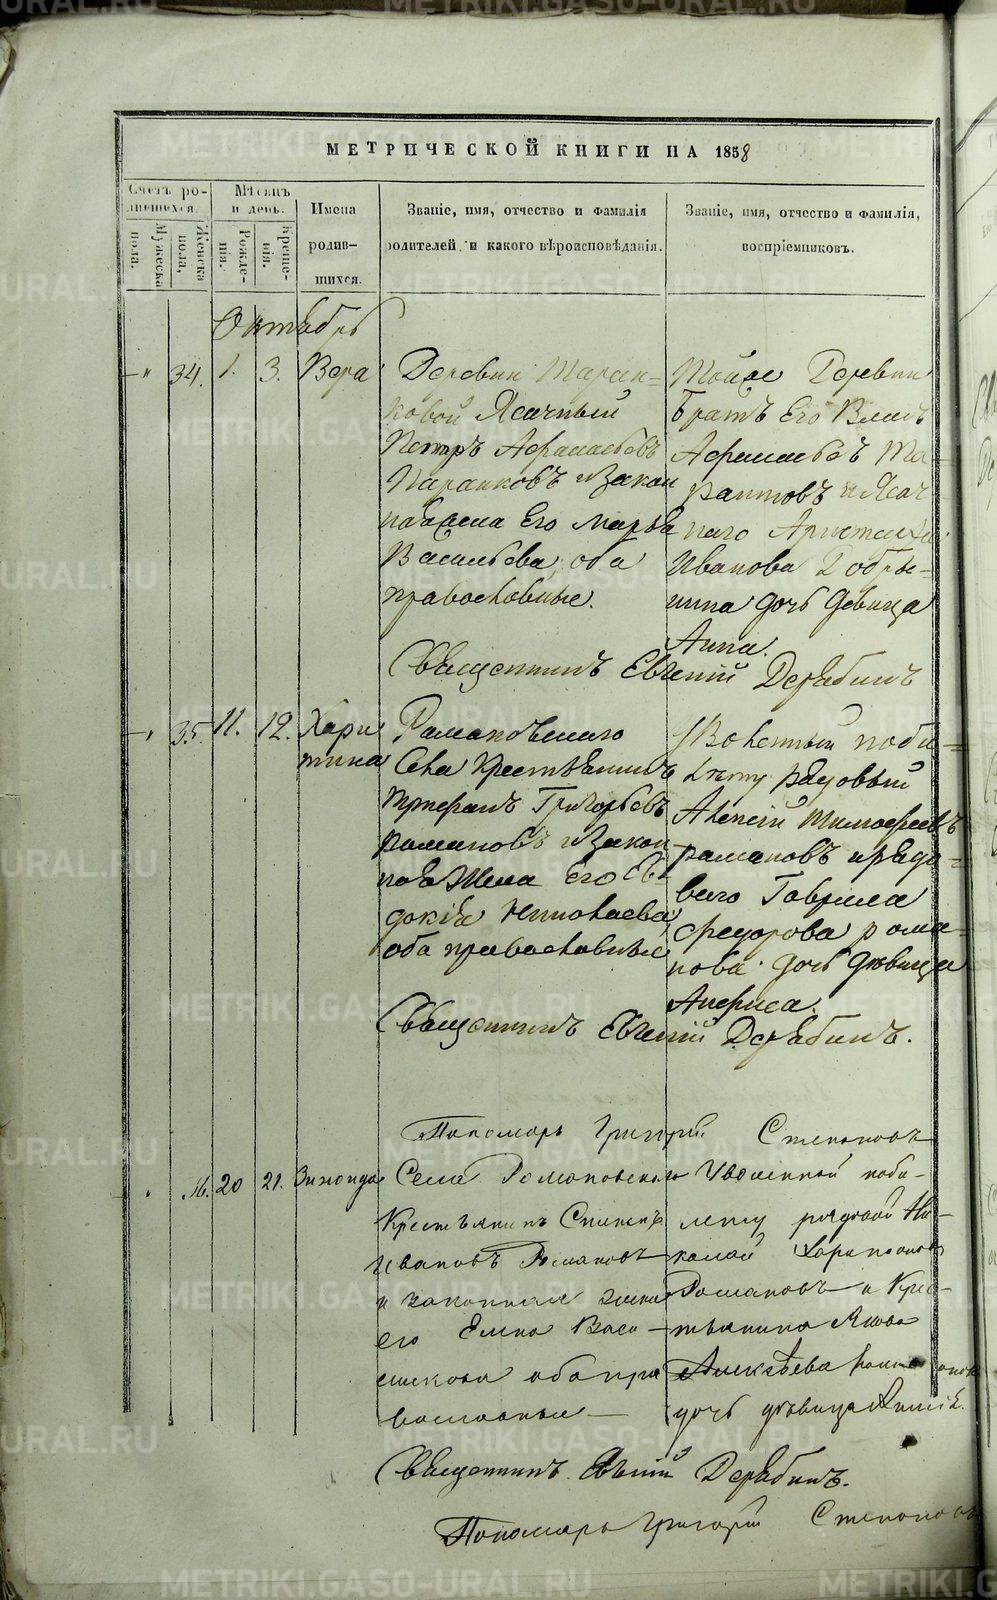 МЕТРИЧЕСКОЙ КНИГИ НА 1858
Счетъ ро-
дившихся.
Мужеска пола.
Женска пола.
Мѣсяцъ
и день.
Рожде-
нія.
Креще-
нія.
Имена
родив-
шихся.
Званіе, имя, отчество и фамилія
родителей, и какого вѣроисповѣданія.
Званіе, имя, отчество и фамилія,
воспріемниковъ.
Октябрь
" 34. 1. 3. Вера
Деревни Таран-
ковой Ясачный
Петръ Афанасьевъ
Таранковъ и закон
ная жена Его Марья
Васильева, оба
православные.
Тойже Деревни
Братъ Его Власъ
Афанасьевъ Та-
и Ясач-
наго
Иванова Добры-
нина дочь девица
Анна.
Священникъ Евгеній Дерябинъ
" 35. 11. 12. Хари
тина
Романовскаго
Села Крестьянинъ
Григорьевъ
Романовъ и закон-
ная Жена Его Ев-
докія Николаева
оба православные
Уволенный поби-
лету рядовый
Алексій Тимофеевъ
Романовъ и рядо-
ваго Гаврила
Федорова Рома-
нова дочь девица
Анфиса.
Священникъ Евгеній Дерябинъ.
Пономарь Григорій Степановъ
" 36. 20 21. Зинонида
Села Романовскаго
Крестьянинъ
Ивановъ Романовъ
и законная жена
его Елена Васи-
оба пра
вославные
Уволенной поби-
лету рядовой Ни-
колай Харитоновъ
Романовъ и Крес-
тьянина Якова
Алексѣева
дочь девица
Священникъ Евгеній Дерябинъ.
Пономарь Григорій Степановъ
METRIKI.GASO-URAL.RU